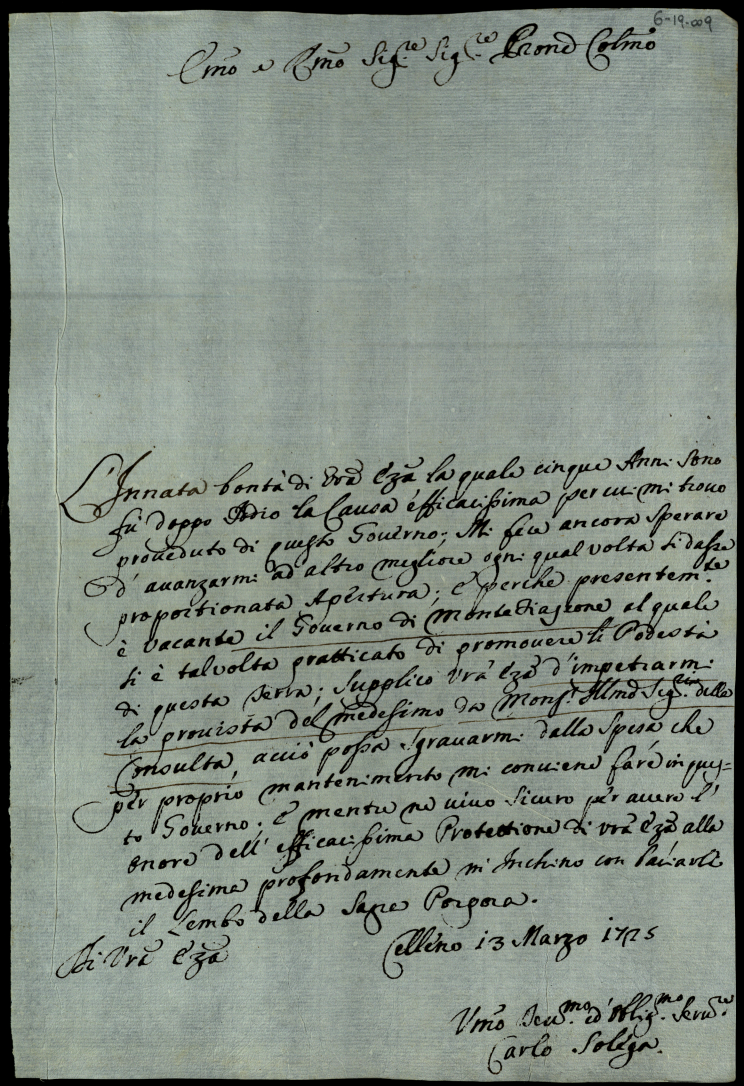 6-19-009
Emo e Rmo Sig.re Sig.re Prond Colmo
L'Innata bontà di Vrã Ezã la quale cinque Anni sono
fù doppo Iddio la Causa efficacissima per cui mi trovo
proveduto di questo Governo; Mi fece ancora sperare
d'avanzarmi ad altro migliore ogni qual volta si dasse
proportionata Apertura; e perche presentem.te
è vacante il Governo di Montefiascone al quale
si è talvolta pratticato di promovere li Podestà
di questa Terra; Supplico Vrã Ezã d'impetrarmi
la provista del medesimo da Mons.r Illmo Seg.rio della
Consulta, acciò possa sgravarmi dalla spesa che
per proprio mantenimento mi conviene fare in ques=
to Governo; E mentre ne vivo sicuro per avere l'
onore dell'efficacissima Protettione di Vrã Ezã alla
medesima profondamente m'Inchino con baciarli
il Lembo della Sagra Porpora.
Di Vrã Ezã
Celleno 13 Marzo 1725
Vmo Deu.mo ed Oblig.mo Seru.re
Carlo Solega.